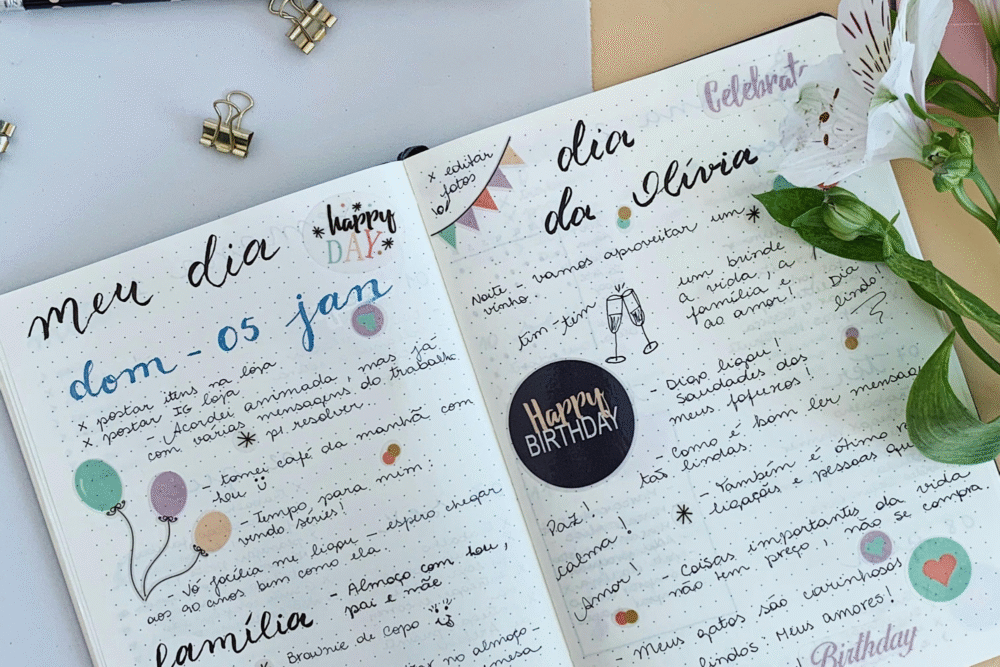 meu dia
happy
DAY.
dom - 05 jan
x postar itens na loja
x postar IG loja
- Acordei animada, mas já
com várias mensagens do trabalho
p/ resolver.
- tomei café da manhã com
- Tempo para mim:
vindo séries!
- Vó Jocília me ligou - espero chegar
aos 90 anos bem como ela.
família
- Almoço com
pai e mãe
Brownie de copo
no almoço -
mesa
x editar
fotos
dia
da Olívia
Celebrat
Noite - vamos aproveitar um
vinho...
tim-tim
um brinde
a vida, a
família e
ao amor! Dia
lindo!
Happy
BIRTHDAY
- Diogo ligou!
Saudades dos
meus fofuros!
- Como é bom ler mensagens
tão lindas.
- Também é ótimo
ligações e pessoas que
Paz!
calma!
Amor!
- Coisas importantes da vida
não tem preço, não se compra
- Meus gatos são carinhosos
lindos. Meus amores!
Birthday